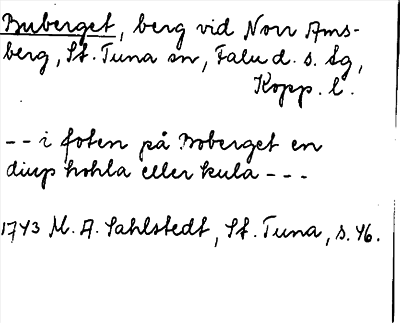 Buberget, berg vid Norr Ams-
berg, St. Tuna sn, Falu d. s. lg,
Kopp. l.
-- i foten på Boberget en
diup hohla eller kula ---
1743 M. A. Sahlstedt, St. Tuna, s. 46.